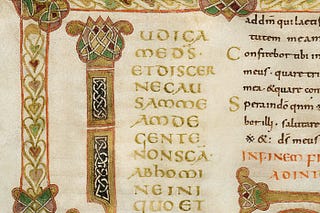 IUDICA
MEDS̄·
ETDISCER
NECAU
SAMME
AMDE
GENTE
NONSCĀ·
ABHOMI
NEINI
QUOET
addm̄ qui laetif
tutem meam
Confitebor tibi in
meus· quare tri
mea· &quare con
Speraindo qnm̄ &
bor illi· salutare
& d̄s meus
INFINEM FI